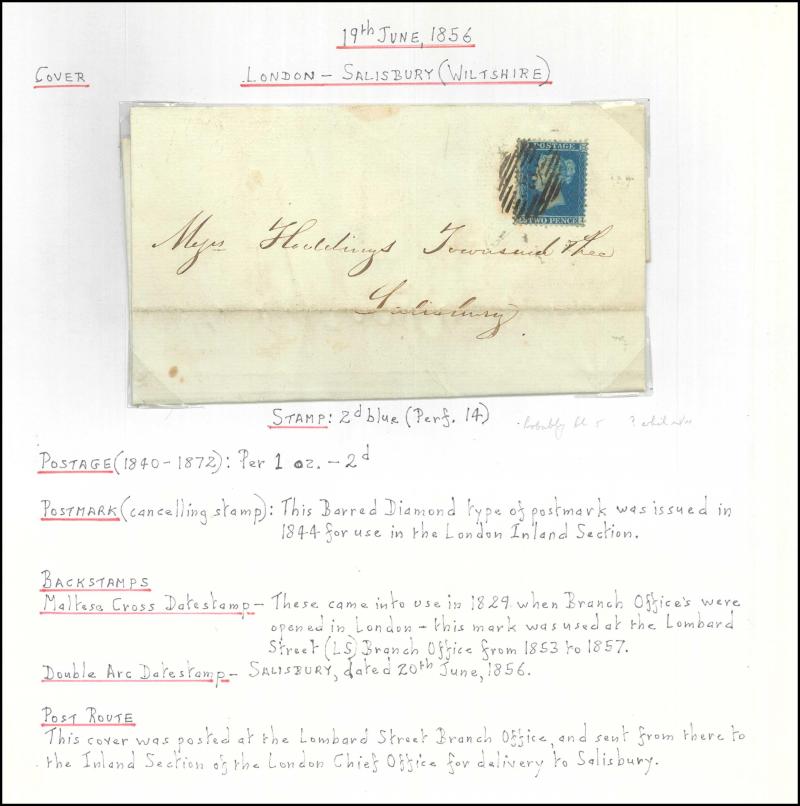 19th June, 1856
Cover
London - Salisbury (Wiltshire)
POSTAGE
TWO PENCE
Messrs Hoddings Townsend &
Salisbury
Stamp: 2d blue (Perf. 14)
Probably pl 5
Postage (1840-1872): Per 1 oz. - 2d
Postmark (cancelling stamp): This Barred Diamond type of postmark was issued in
1844 for use in the London Inland Section.
Backstamps
Maltese Cross Datestamp - These came into use in 1829 when Branch Office's were
opened in London - this mark was used at the Lombard
Street (LS) Branch Office from 1853 to 1857.
Double Arc Datestamp - Salisbury, dated 20th June, 1856.
Post Route
This cover was posted at the Lombard Street Branch Office, and sent from there to
the Inland Section of the London Chief Office for delivery to Salisbury.